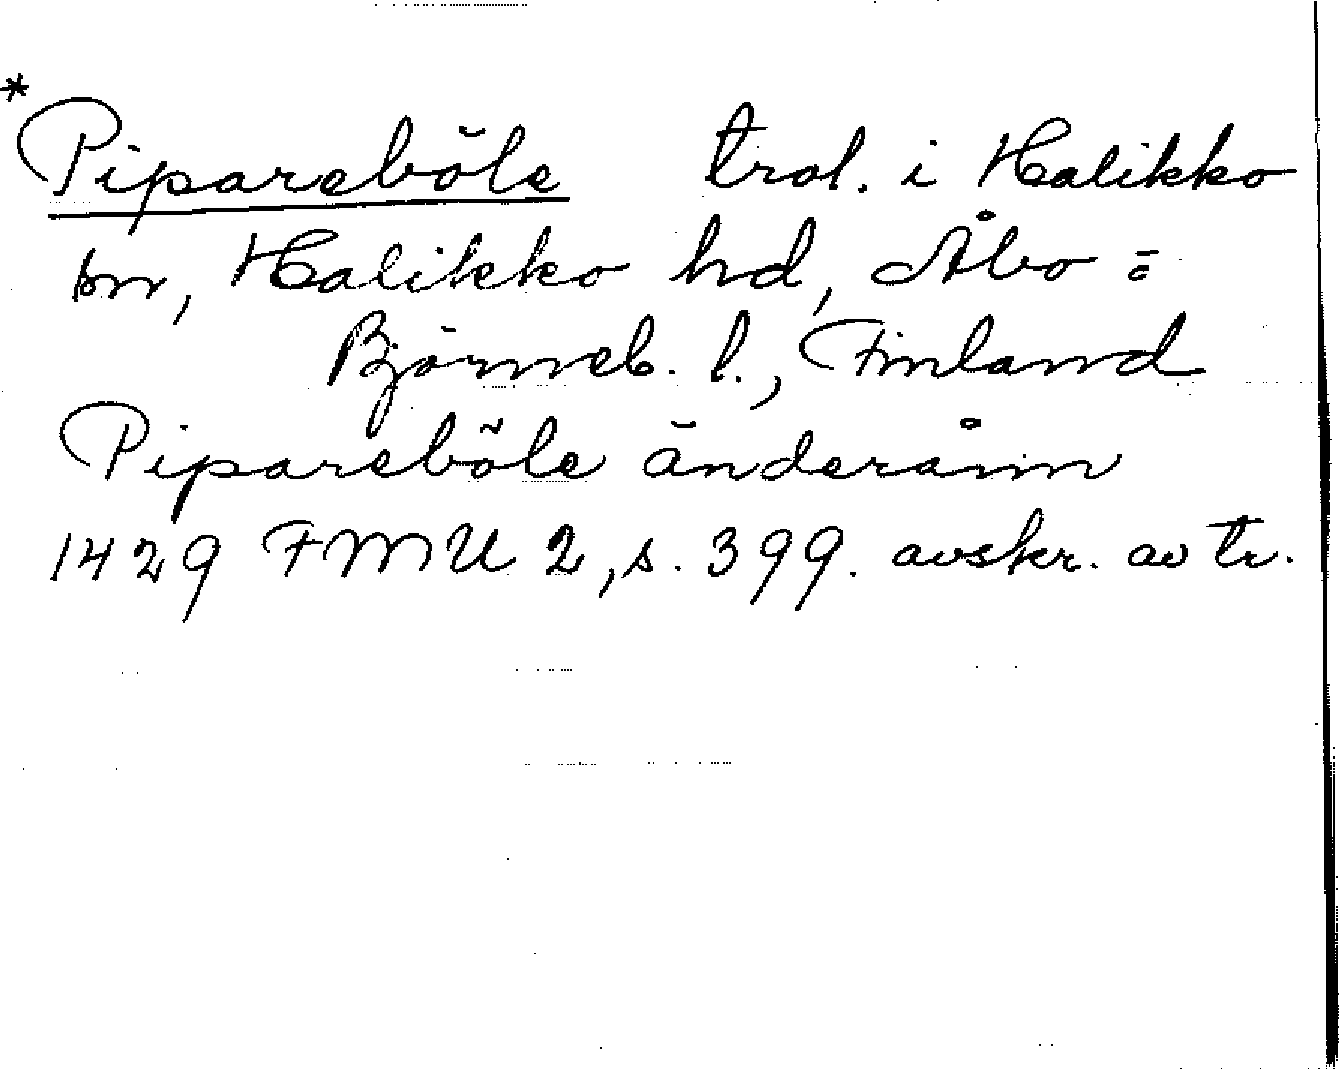 *
Pipareböle trol. i Halikko
sn, Halikko hd, Åbo=
Björneb. l., Finland
Pipareböle änderånn
1429 FMU 2, s. 399. avskr. av tr.